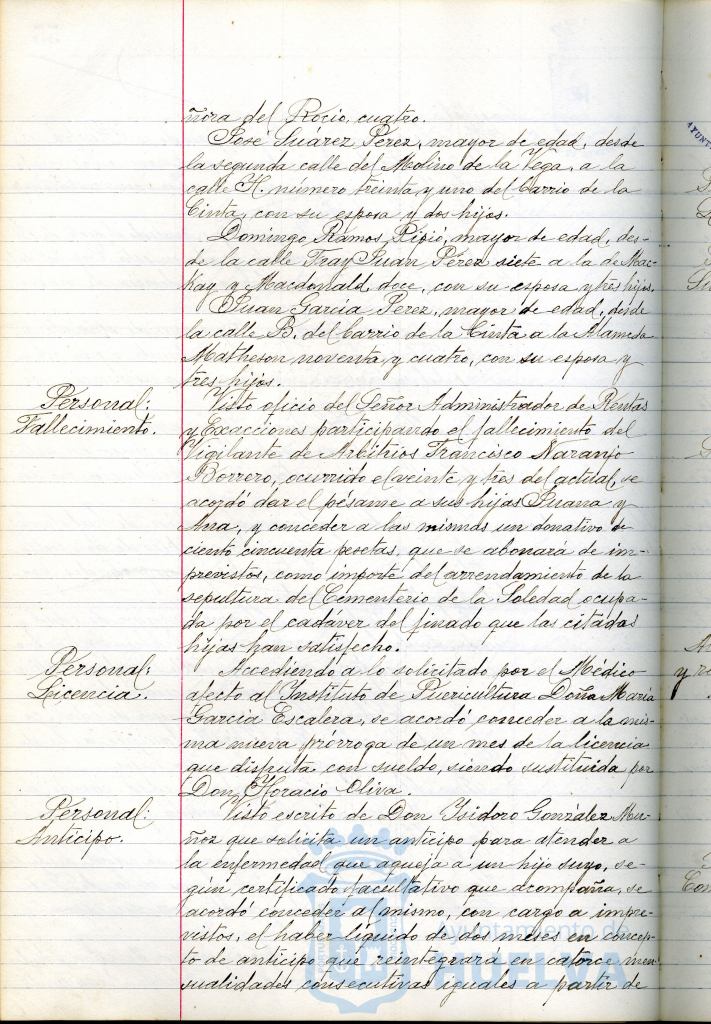 ñora del Rocio, cuatro.
José Suárez Perez, mayor de edad, desde
la segunda calle del Molino de la Vega, a la
calle H. número treinta y uno del Barrio de la
Cinta, con su esposa y dos hijos.
Domingo Ramos, mayor de edad, des-
de la calle Fray Juan Pérez siete a la de Mac-
Kay y Macdonald, doce, con su esposa y tres hijos.
Juan García Perez, mayor de edad, desde
la calle B. del Barrio de la Cinta a la Alameda
Matheson noventa y cuatro, con su esposa y
tres hijos.
Personal:
Fallecimiento.
Visto oficio del Señor Administrador de Rentas
y Exacciones participando el fallecimiento del
Vigilante de Arbitrios Francisco Naranjo
Borrero, ocurrido el veinte y tres del actual, se
acordó dar el pésame a sus hijas Juana y
Ana, y conceder a las mismas un donativo de
ciento cincuenta pesetas, que se abonará de im-
previstos, como importe del arrendamiento de la
sepultura del Cementerio de la Soledad ocupa-
da por el cadaver del finado que las citadas
hijas han satisfecho.
Personal:
Licencia.
Accediendo a lo solicitado por el Médico
afecto al Instituto de Puericultura Doña María
García Escalera, se acordó conceder a la mis-
ma nueva prórroga de un mes de la licencia
que disfruta con sueldo, siendo sustituida por
Don Horacio Oliva.
Personal:
Anticipo.
Visto escrito de Don Isidoro González Mu-
ñoz que solicita un anticipo para atender a
la enfermedad que aqueja a un hijo suyo, se-
gún certificado facultativo que acompaña, se
acordó conceder al mismo, con cargo a impre-
vistos, el haber líquido de dos meses en concep-
to de anticipo que reintegrará en catorce men-
sualidades consecutivas iguales a partir de
Ayuntamiento de
HUELVA